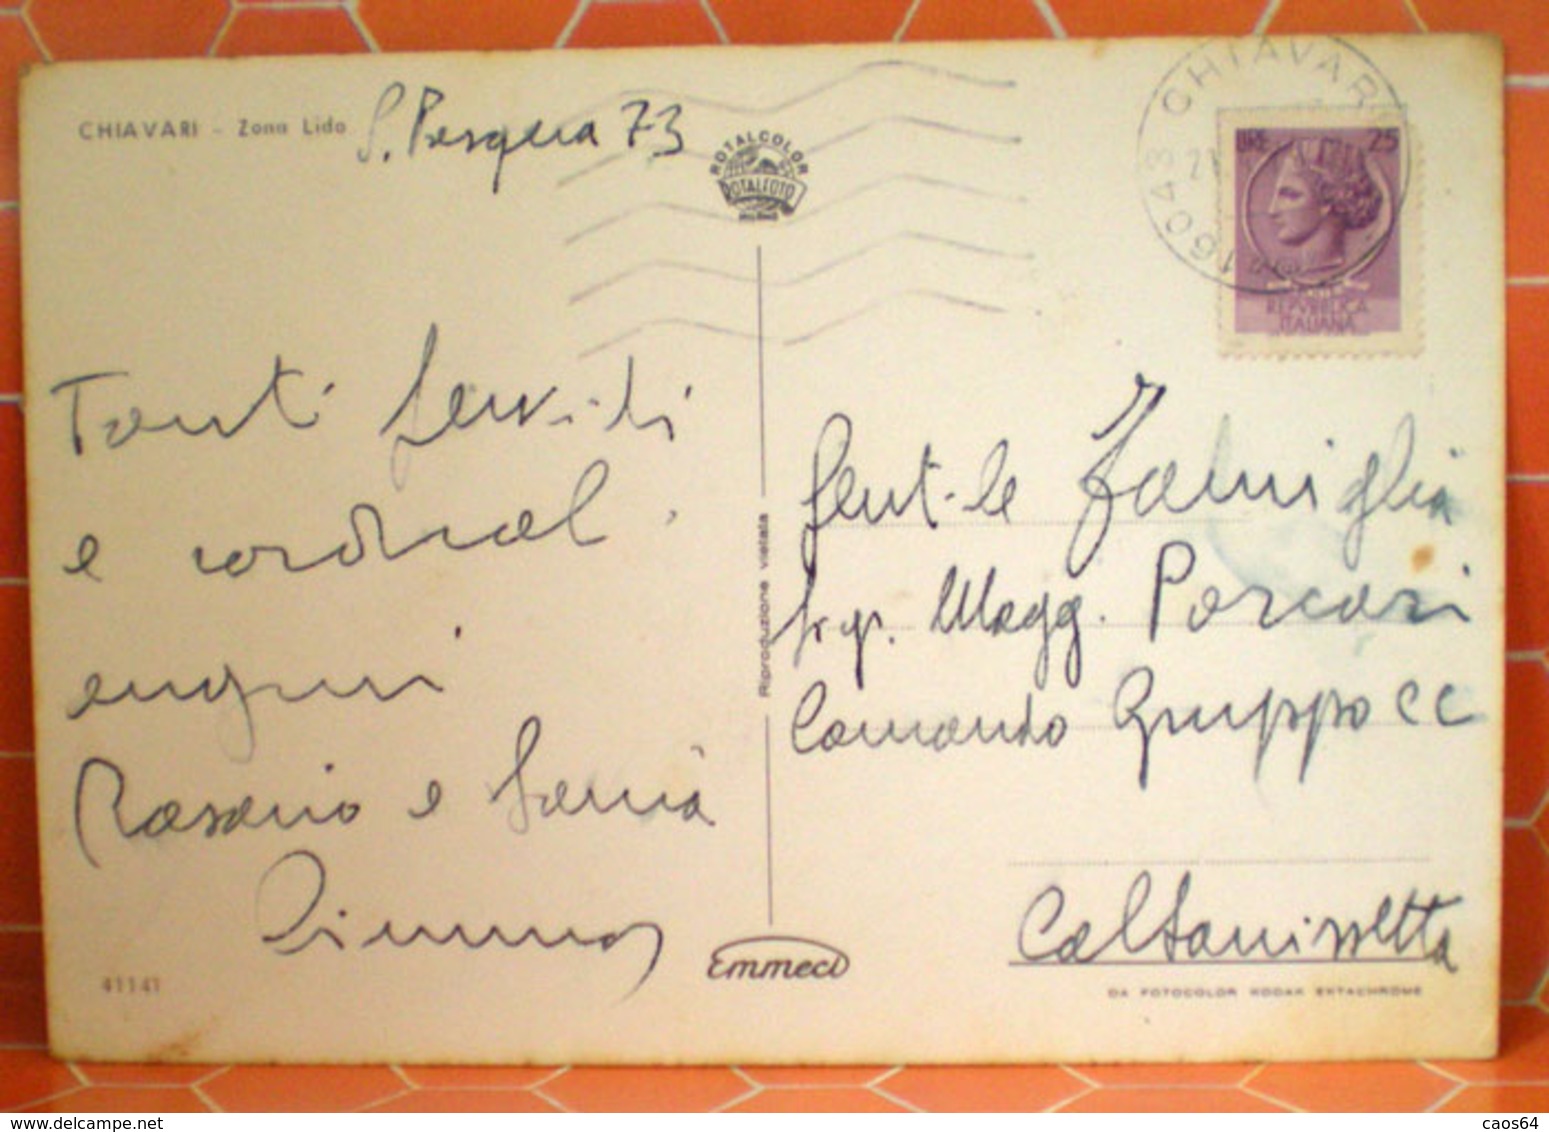 CHIAVARI - Zona Lido
S. Pasqua 73
ROTALCOLOR
ROTALFOTO
MILANO
16043 CHIAVARI
21
LIRE 25
POSTE
REPVBBLICA
ITALIANA
Tanti fervidi
e cordiali
auguri
Rosario e Sonia
Riproduzione vietata
Gent.le Famiglia
Sig. Magg. Porcari
Comando Gruppo CC
Caltanissetta
41141
Emmeci
DA FOTOCOLOR KODAK EKTACHROME
delcampe.net
caos64